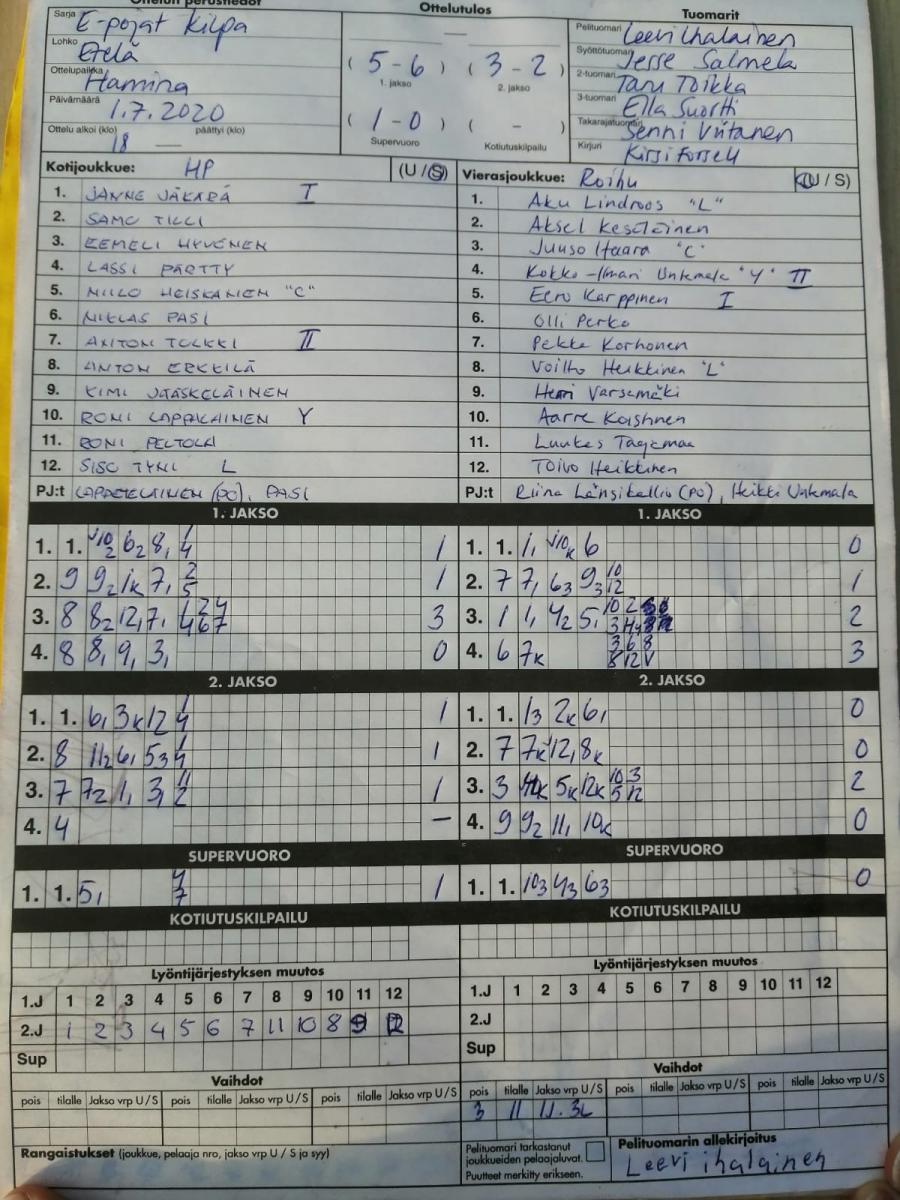 Ottelun perustiedot
Ottelutulos
Tuomarit
Sarja E-pojat Kilpa
Lohko Etelä
Ottelupaikka Hamina
Päivämäärä 1.7.2020
Ottelu alkoi (klo) päättyi (klo)
18 —
—
( 5 - 6 ) ( 3 - 2 )
1. jakso 2. jakso
( 1 - 0 ) ( - )
Supervuoro Kotiutuskilpailu
Pelituomari Leevi Ihalainen
Syöttötuomari Jesse Salmela
2-tuomari Taru Toikka
3-tuomari Ella Suortti
Takarajatuomari Senni Viitanen
Kirjuri Kirsi Forsell
Kotijoukkue: HP (U / S)
1. JANNE JÄKÄRÄ I
2. SAMU TILLI
3. EEMELI HYVÖNEN
4. LASSI PÄRTTY
5. MIILO HEISKANEN "C"
6. NIKLAS PASI
7. ANTON TOLKKI II
8. ANTON ERKKILÄ
9. KIMI JÄÄSKELÄINEN
10. RONI LAPPALAINEN Y
11. RONI PELTOLA
12. SISU TYNI L
PJ:t (PO), PASI
Vierasjoukkue: Roihu (U / S)
1. Aku Lindroos "L"
2. Aksel Kesäläinen
3. Juuso Haara "C"
4. Kokko-Ilmari Unkmala "Y" II
5. Eero Karppinen I
6. Olli Perko
7. Pekka Korhonen
8. Voitto Heikkinen "L"
9. Henri Varsamäki
10. Aarre
11. Luukas
12. Toivo Heikkinen
PJ:t Riina Länsikallio (PO), Heikki Unkmala
1. JAKSO
1. 1. 6₂ 8₁ 1 4 1
2. 9 9₂ 1k 7₁ 2 5 1
3. 8 8₂ 12₁ 7₁ 1 2 4 4 6 7 3
4. 8 8₁ 9₁ 3₁ 0
1. JAKSO
1. 1. 1₁ 6 0
2. 7 7₁ 6₃ 9₃ 10 12 1
3. 1 1₁ 4₂ 5₁ 10 2 2
4. 6 7k 3 6 8 8 12 V 3
2. JAKSO
1. 1. 6₁ 3k 12 1 4 1
2. 8 11₂ 6₁ 5₃ 1 4 1
3. 7 7₂ 1₁ 3₁ 1
4. 4 —
2. JAKSO
1. 1. 1₃ 2k 6₁ 0
2. 7 7k 12₁ 8k 0
3. 3 5k 12k 10 3 5 12 2
4. 9 9₂ 11₁ 10k 0
SUPERVUORO
1. 1. 5₁ 4 7 1
SUPERVUORO
1. 1. 10₃ 4₃ 6₃ 0
KOTIUTUSKILPAILU
KOTIUTUSKILPAILU
Lyöntijärjestyksen muutos
1.J 1 2 3 4 5 6 7 8 9 10 11 12
2.J 1 2 3 4 5 6 7 11 10 8 9 12
Sup
Lyöntijärjestyksen muutos
1.J 1 2 3 4 5 6 7 8 9 10 11 12
2.J
Sup
Vaihdot
pois tilalle Jakso vrp U/S pois tilalle Jakso vrp U/S pois tilalle Jakso vrp U/S
Vaihdot
pois tilalle Jakso vrp U/S pois tilalle Jakso vrp U/S pois tilalle Jakso vrp U/S
3 11
Rangaistukset (joukkue, pelaaja nro, jakso vrp U / S ja syy)
Pelituomari tarkastanut
joukkueiden pelaajaluvat.
Puutteet merkitty erikseen.
Pelituomarin allekirjoitus
Leevi ihalainen